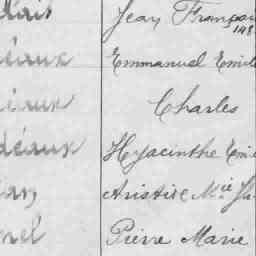 Jean François
148
éaux Emmanuel Emile
éaux Charles
déaux Hyacinthe Emi
Aristide Mie
nel Pierre Marie